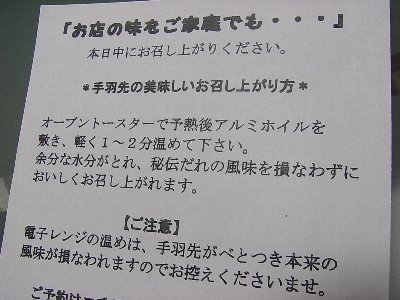 『お店の味をご家庭でも・・・』
本日中にお召し上がりください。
*手羽先の美味しいお召し上がり方*
オーブントースターで予熱後アルミホイルを
敷き、軽く1～2分温めて下さい。
余分な水分がとれ、秘伝だれの風味を損なわずに
おいしくお召し上がれます。
【ご注意】
電子レンジの温めは、手羽先がべとつき本来の
風味が損なわれますのでお控えくださいませ。
ご予約は